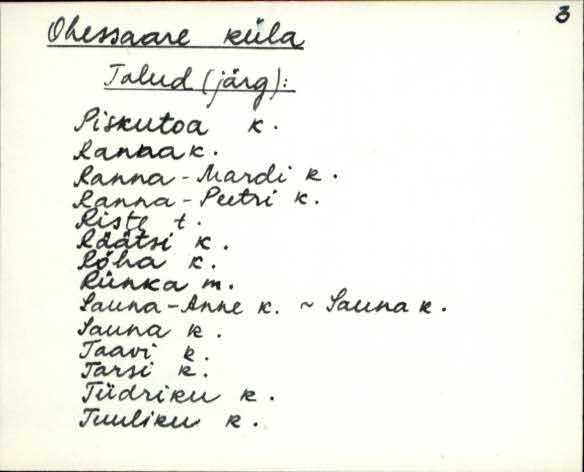 3
Ohessaare küla
Talud (järg):
Piskutoa k.
Ranna k.
Ranna-Mardi k.
Ranna-Peetri k.
Riste t.
Räätsi k.
Rõha k.
Rünka m.
Sauna-Anne k. ~ Sauna k.
Sauna k.
Taavi k.
Tarsi k.
Tüdriku k.
Tuuliku k.